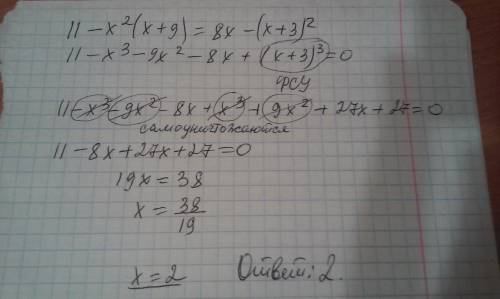 11 - x²(x+9) = 8x - (x+3)²
11 - x³ - 9x² - 8x + (x+3)³ = 0
ФСУ
11 - x³ - 9x² - 8x + x³ + 9x² + 27x + 27 = 0
самоуничтожаются
11 - 8x + 27x + 27 = 0
19x = 38
x = 38/19
x = 2 Ответ: 2.